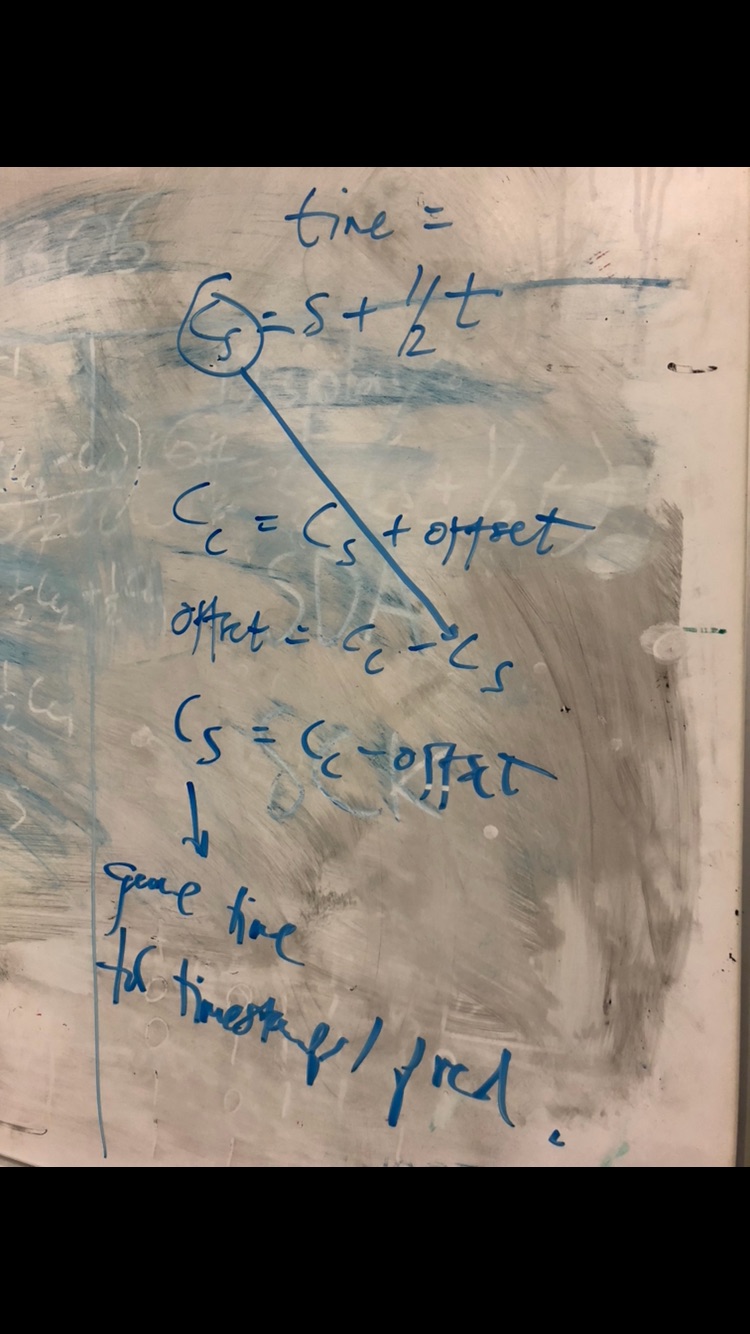 time =
Cs = S + 1/2 t
Cc = Cs + offset
offset = Cc - Cs
Cs = Cc - offset
↓
game time
for timestamps / pred.